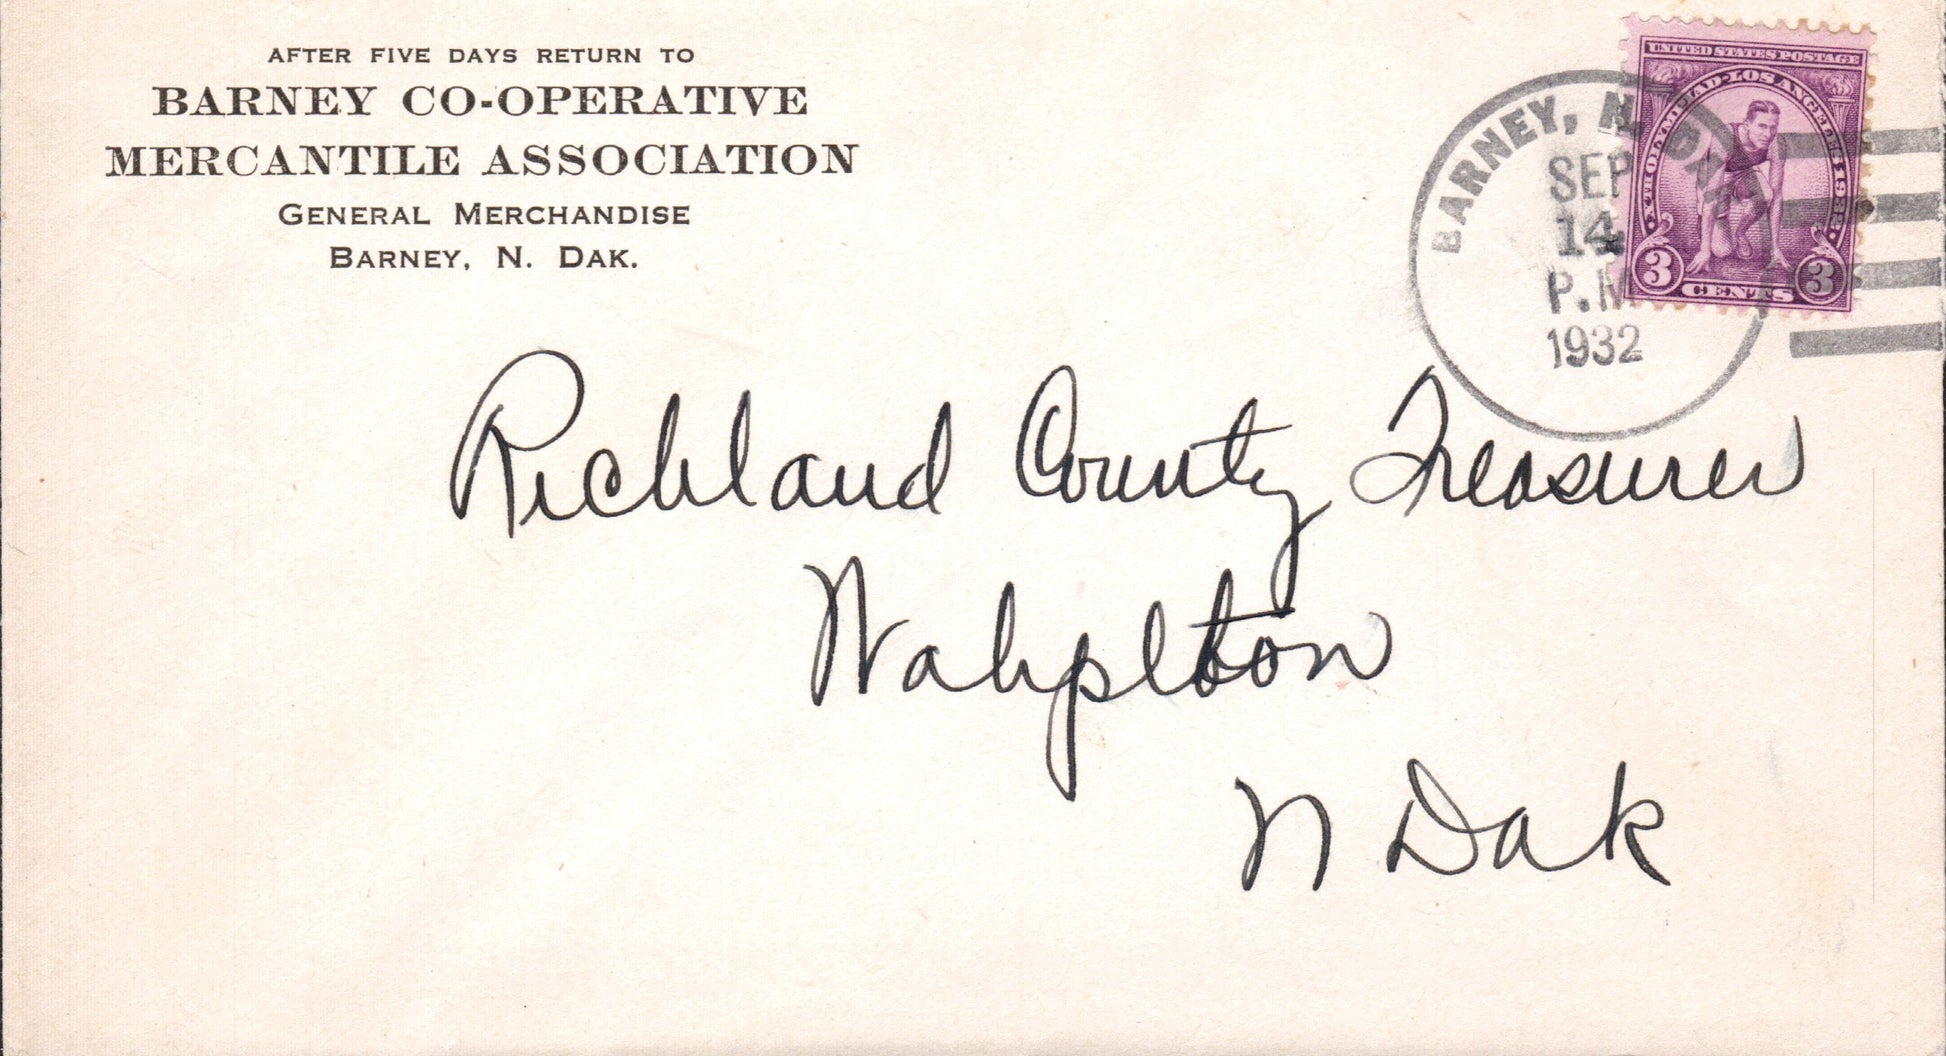 AFTER FIVE DAYS RETURN TO
BARNEY CO-OPERATIVE
MERCANTILE ASSOCIATION
GENERAL MERCHANDISE
BARNEY, N. DAK.
UNITED STATES POSTAGE
X TH OLYMPIAD · LOS ANGELES 1932
3 CENTS 3
BARNEY, N. DAK.
SEP
14
P.M
1932
Richland County Treasurer
Wahpeton
N Dak